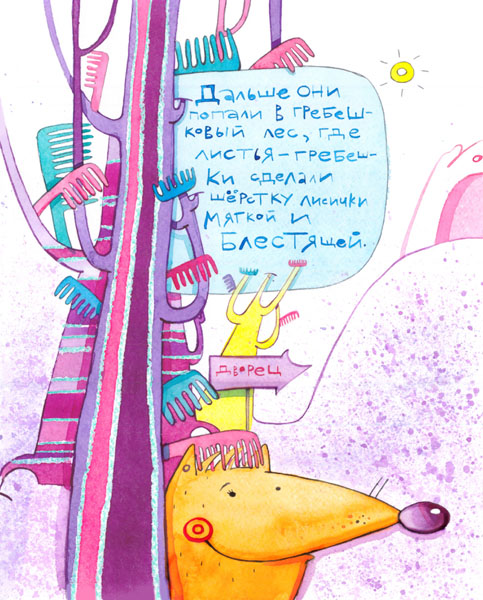 Дальше они
попали в гребеш-
ковый лес, где
листья-гребеш-
ки сделали
шёрстку лисички
мягкой и
блестящей.
дворец